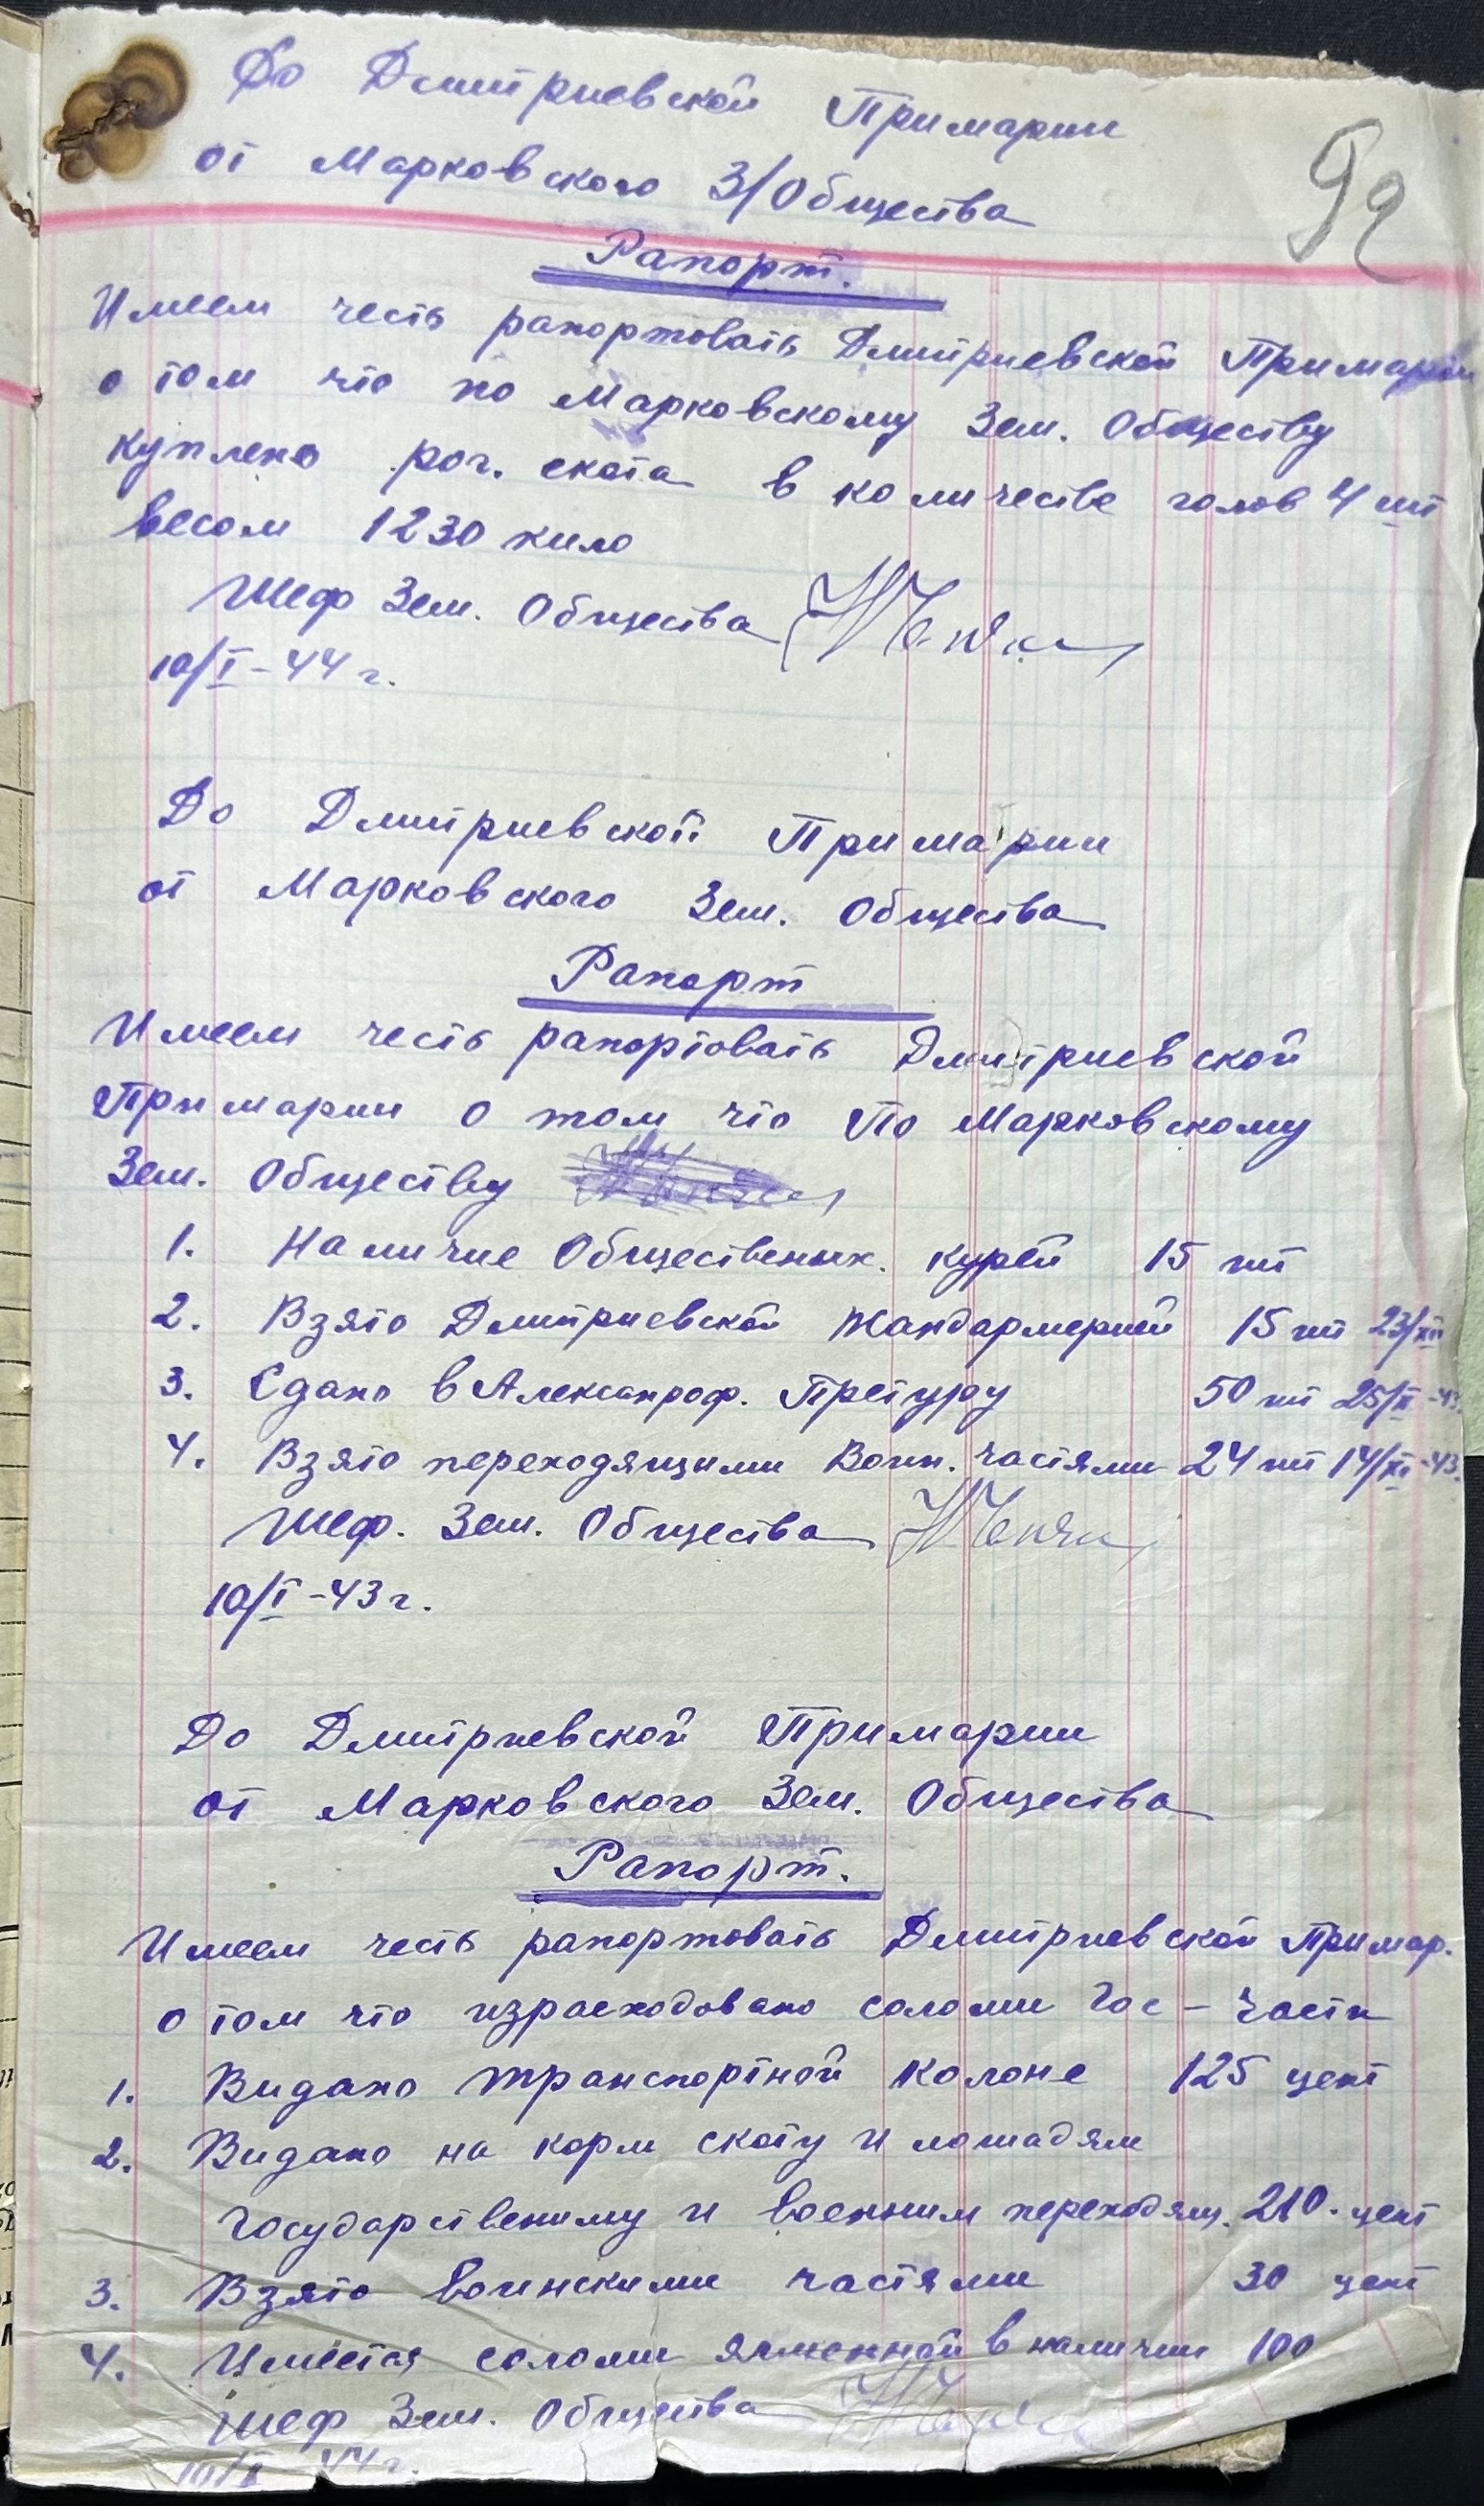 До Дмитриевской Примарии
от Марковского З/Общества
92
Рапорт.
Имеем честь рапортовать Дмитриевской Примарии
о том что по Марковскому Зем. Обществу
куплено рог. скота в количестве голов 4 шт
весом 1230 кило
Шеф Зем. Общества
10/I-44 г.
До Дмитриевской Примарии
от Марковского Зем. Общества
Рапорт
Имеем честь рапортовать Дмитриевской
Примарии о том что По Марковскому
Зем. Обществу
1. Наличие Общественых. курей 15 шт
2. Взято Дмитриевской Жандармерией 15 шт 23/XII
3. Сдано в Александроф. Претуру 50 шт 25/XI-43
4. Взято переходящими Воин. частями 24 шт 14/XI-43.
Шеф. Зем. Общества
10/I-43 г.
До Дмитриевской Примарии
от Марковского Зем. Общества
Рапорт.
Имеем честь рапортовать Дмитриевской Примар.
о том что израсходовано соломи Гос-части
1. Видано транспортной колоне 125 цент
2. Видано на корм скоту и лошадям
Государствениму и военним переходящ. 210. цент
3. Взято воинскими частями 30 цент
4. Имеется соломи ячменной в наличии 100
Шеф Зем. Общества
44 г.